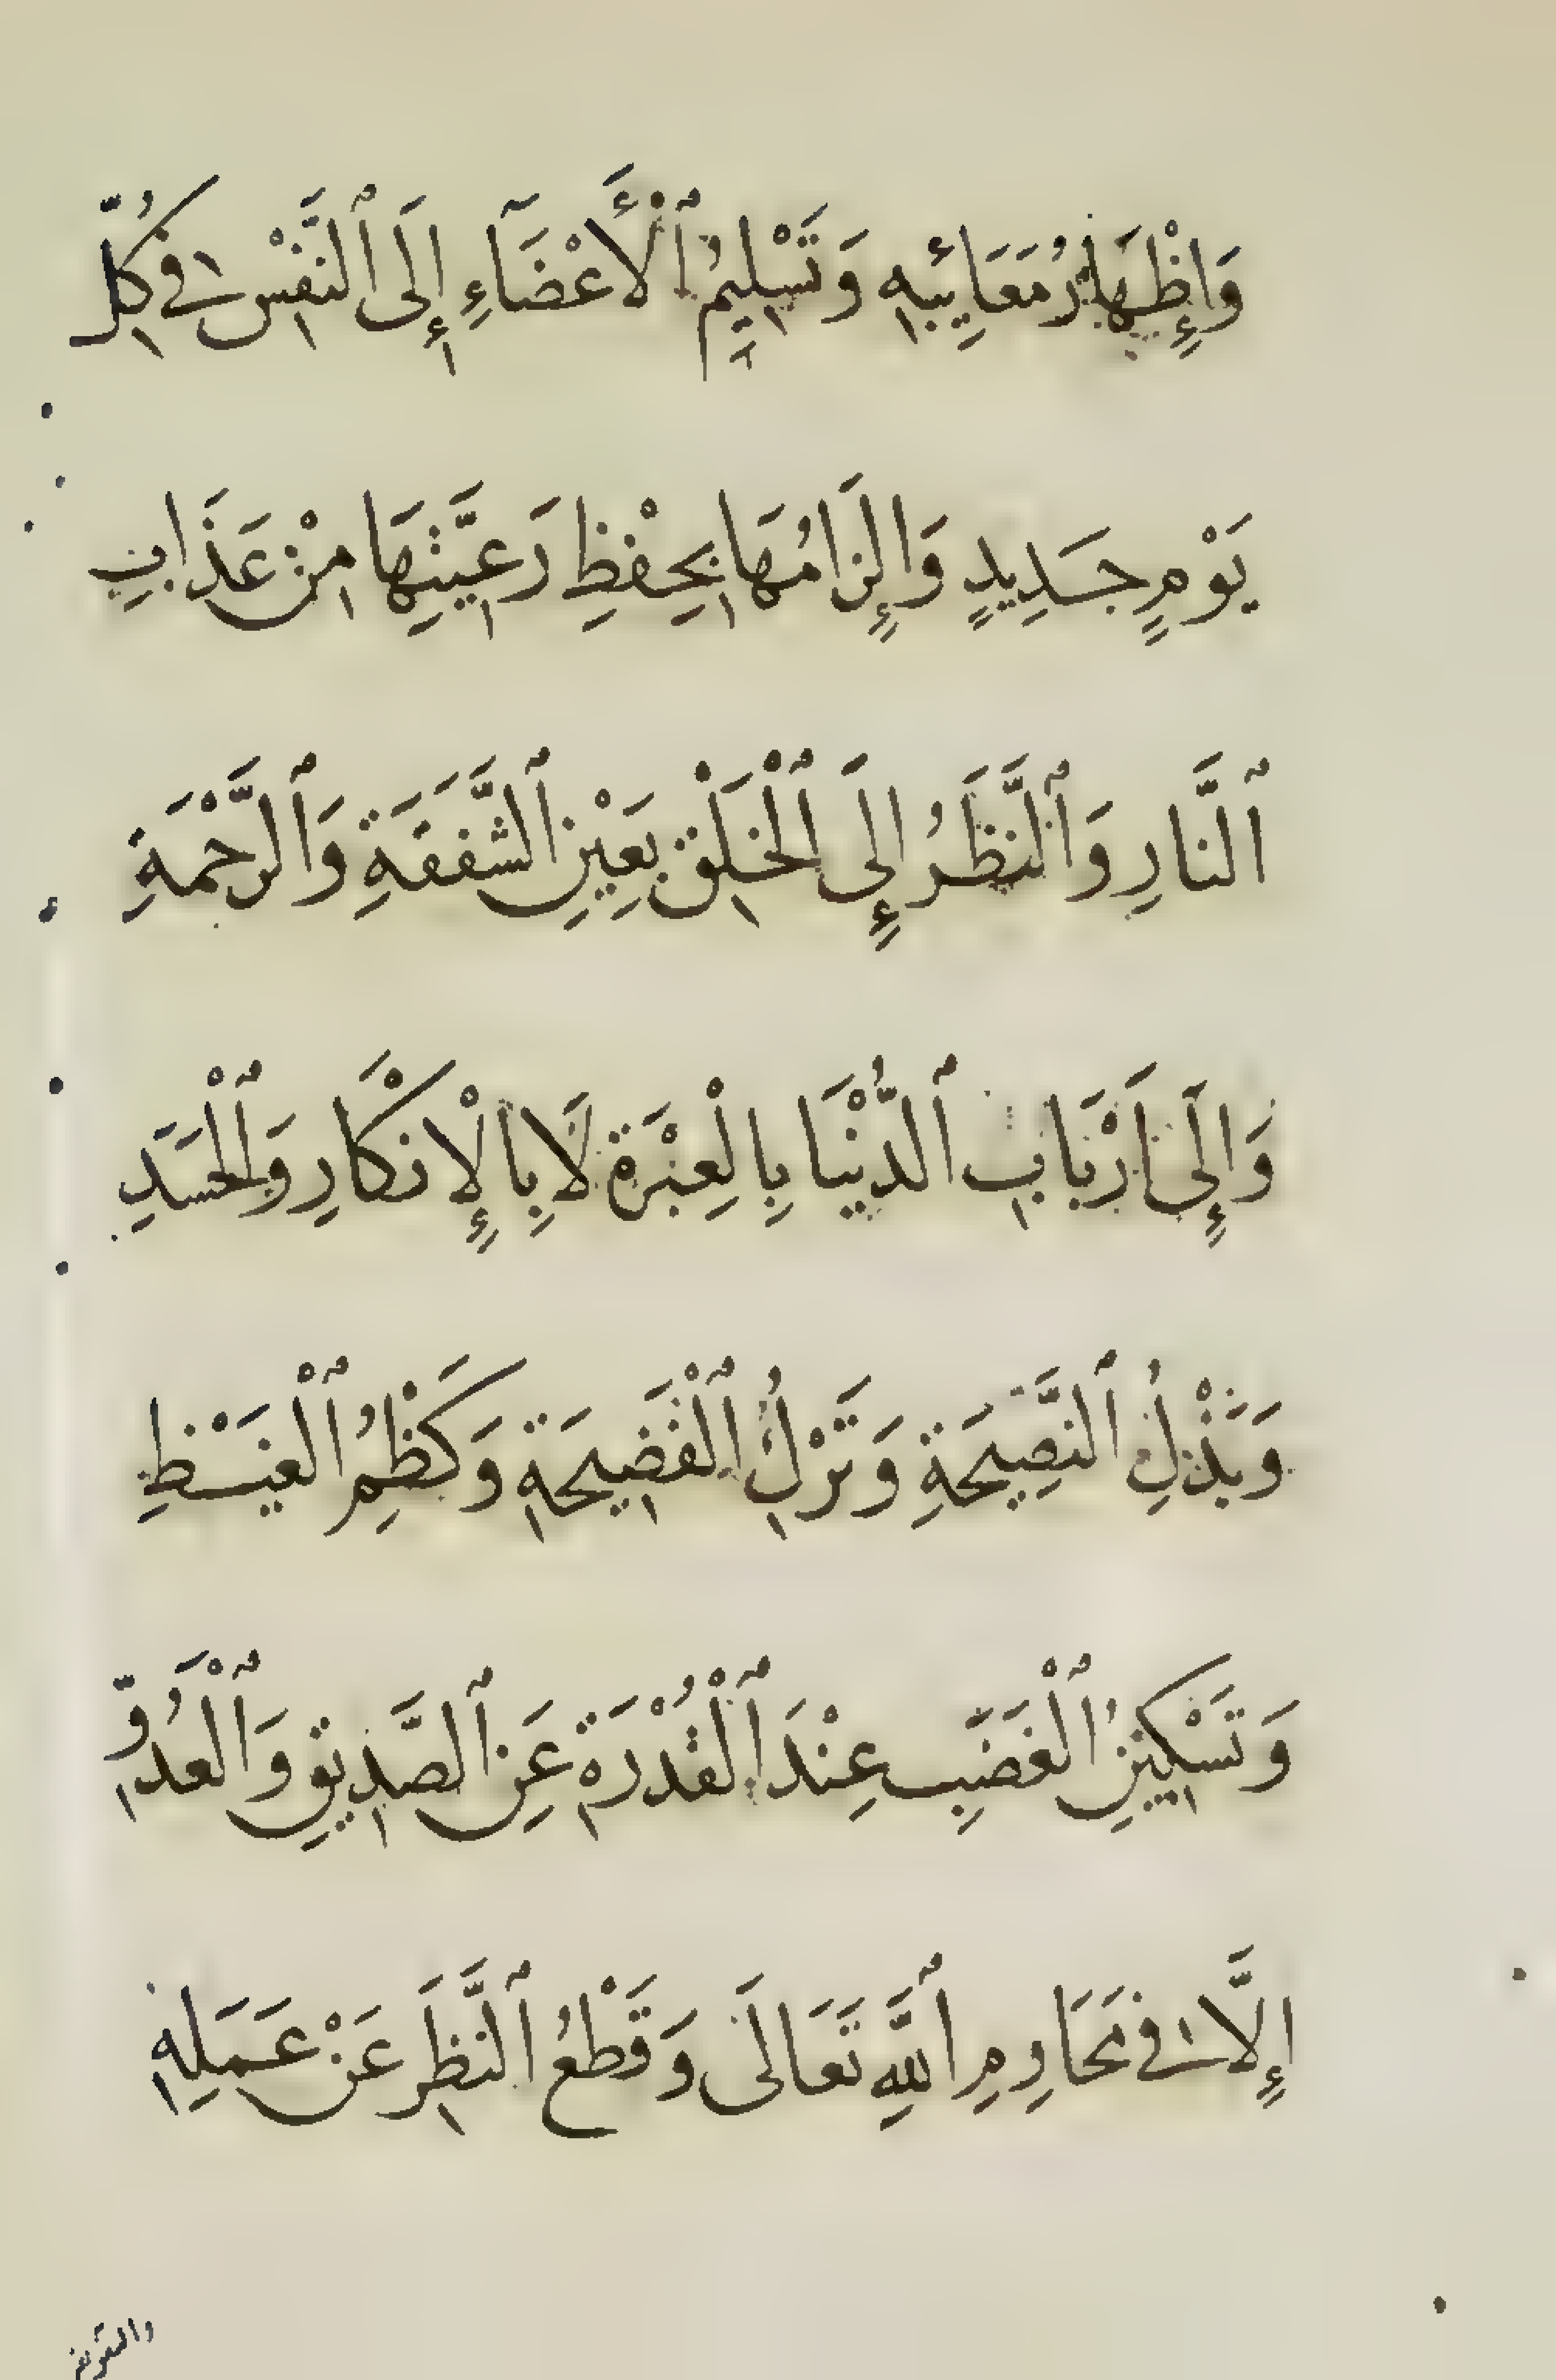 وَإِظْهَارُ مَعَائِبِهِ وَتَسْلِيمُ ٱلْأَعْضَآءِ إِلَى ٱلنَّفْسِ فِي كُلِّ
يَوْمٍ جَدِيدٍ وَإِلْزَامُهَا بِحِفْظِ رَعِيَّتِهَا مِنْ عَذَابِ
ٱلنَّارِ وَٱلنَّظَرُ إِلَى ٱلْخَلْقِ بِعَيْنِ ٱلشَّفَقَةِ وَٱلرَّحْمَةِ
وَإِلَى أَرْبَابِ ٱلدُّنْيَا بِالْعِبْرَةِ لَا بِالْإِنْكَارِ وَٱلْحَسَدِ
وَبَذْلُ ٱلنَّصِيحَةِ وَتَرْكُ ٱلْفَضِيحَةِ وَكَظْمُ ٱلْغَيْظِ
وَتَسْكِينُ ٱلْغَضَبِ عِنْدَ ٱلْقُدْرَةِ عَنِ ٱلصَّدِيقِ وَٱلْعَدُوِّ
إِلَّا فِي مَحَارِمِ ٱللَّهِ تَعَالَى وَقَطْعُ ٱلنَّظَرِ عَنْ عَمَلِهِ